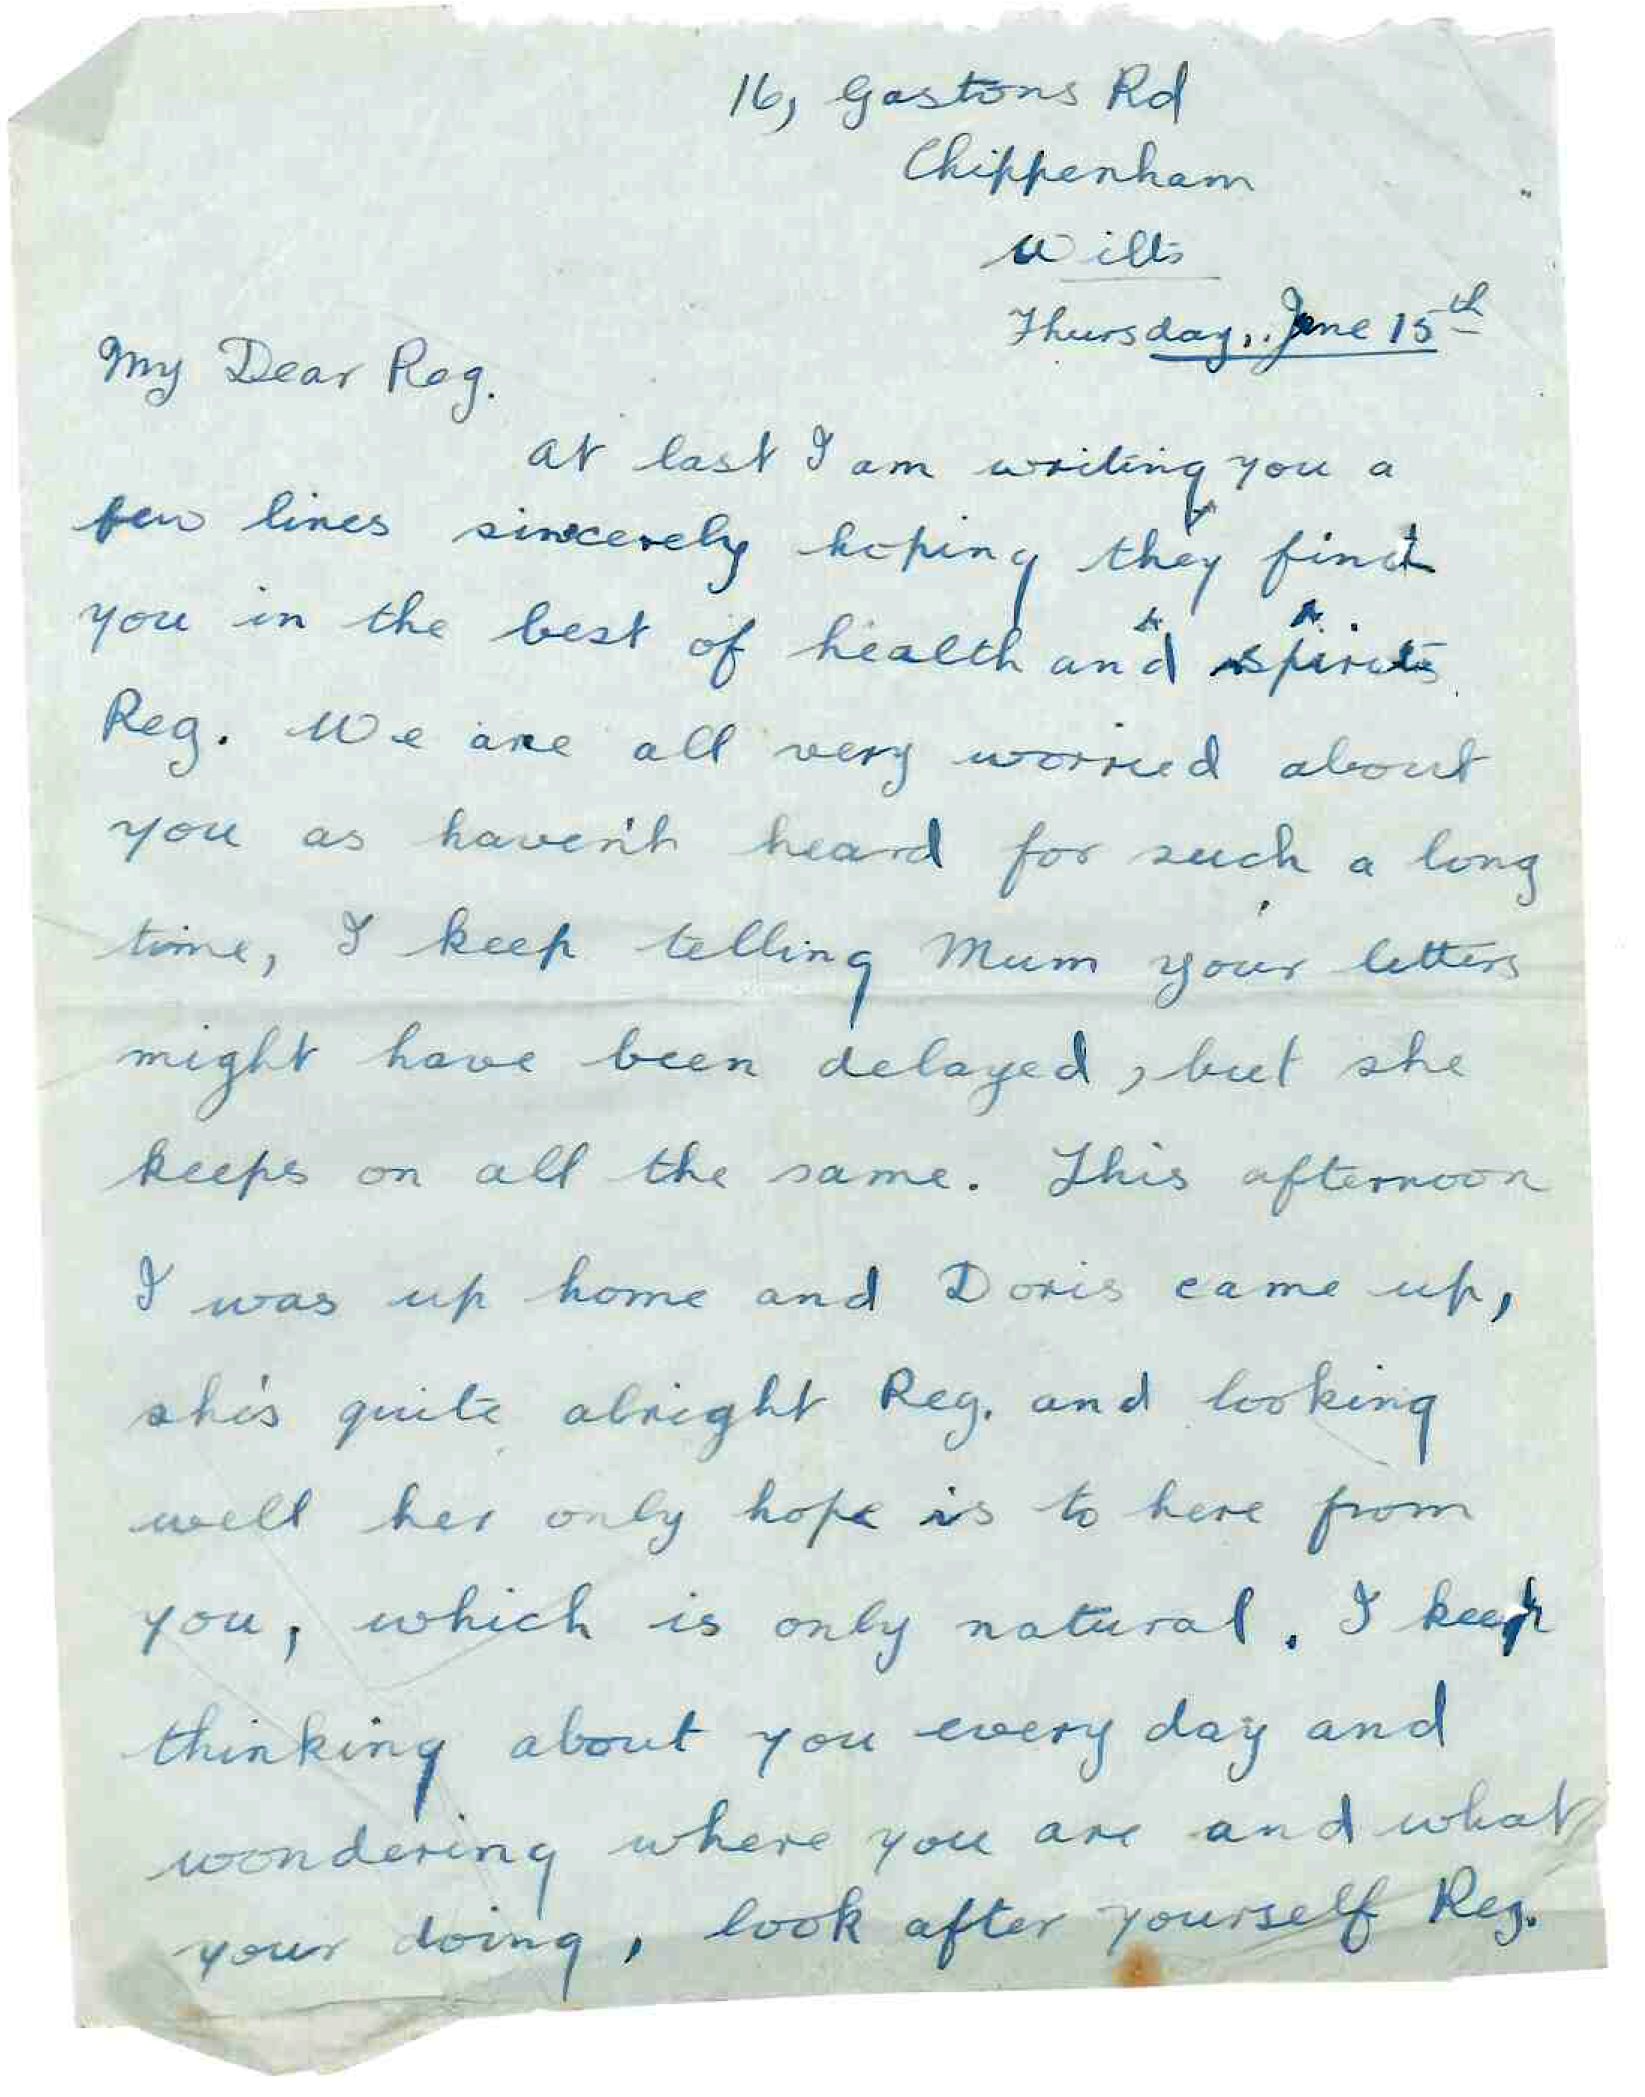 16, Gastons Rd
Chippenham
Wilts
Thursday, June 15th
My Dear Reg.
At last I am writing you a
few lines sincerely hoping they find
you in the best of health and spirits
Reg. We are all very worried about
you as haven't heard for such a long
time, I keep telling Mum your letters
might have been delayed, but she
keeps on all the same. This afternoon
I was up home and Doris came up,
she's quite alright Reg. and looking
well her only hope is to here from
you, which is only natural. I keep
thinking about you every day and
wondering where you are and what
your doing, look after yourself Reg.